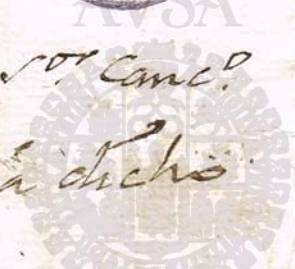 AVSA
Sor. Canco.
à dicho